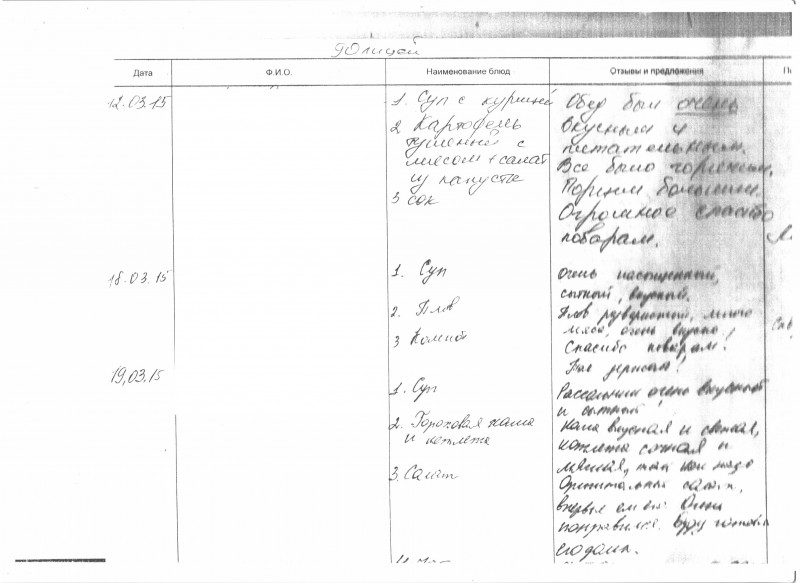 90 лицей
Дата Ф.И.О. Наименование блюд Отзывы и предложения
12.03.15 1. Суп с курицей Обед был очень
2 Картофель вкусным и
тушенный с питательным.
мясом + салат Все было горячим.
из капусты Порции большие.
3 сок Огромное спасибо
поварам.
18.03.15 1. Суп Очень насыщенный,
сытный, вкусный.
2. Плов Плов разваристый, много
мяса, очень вкусно!
3 Компот Спасибо поварам!
19.03.15
1. Суп Рассольник очень вкусный
и сытный!
2. Гороховая каша Каша вкусная и свежая,
и котлета котлета сочная и
мясная, так как надо
3. Салат Оригинальный салат,
впервые ем его. Очень
понравился. Буду готовить